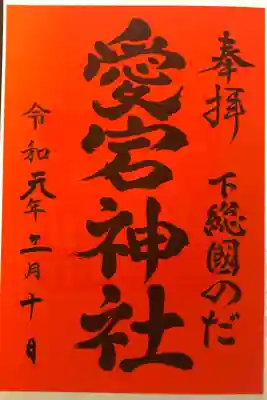 奉拝
下総國のだ
愛宕神社
令和元年十二月十日